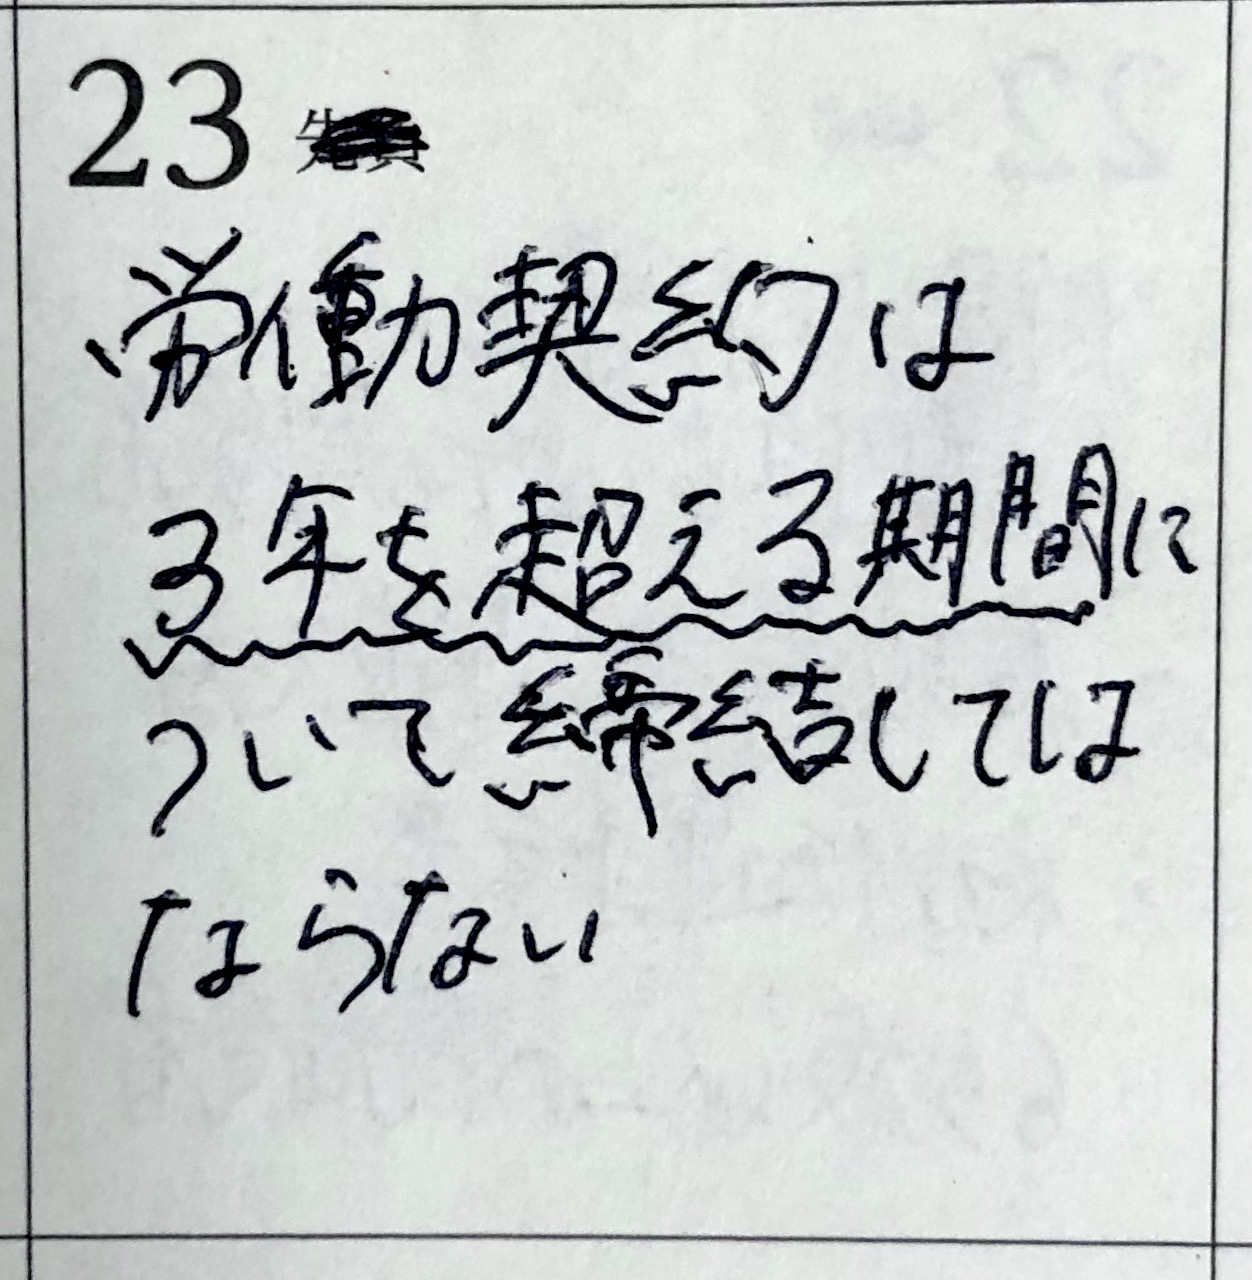 23 先負
労働契約は
3年を超える期間に
ついて締結しては
ならない